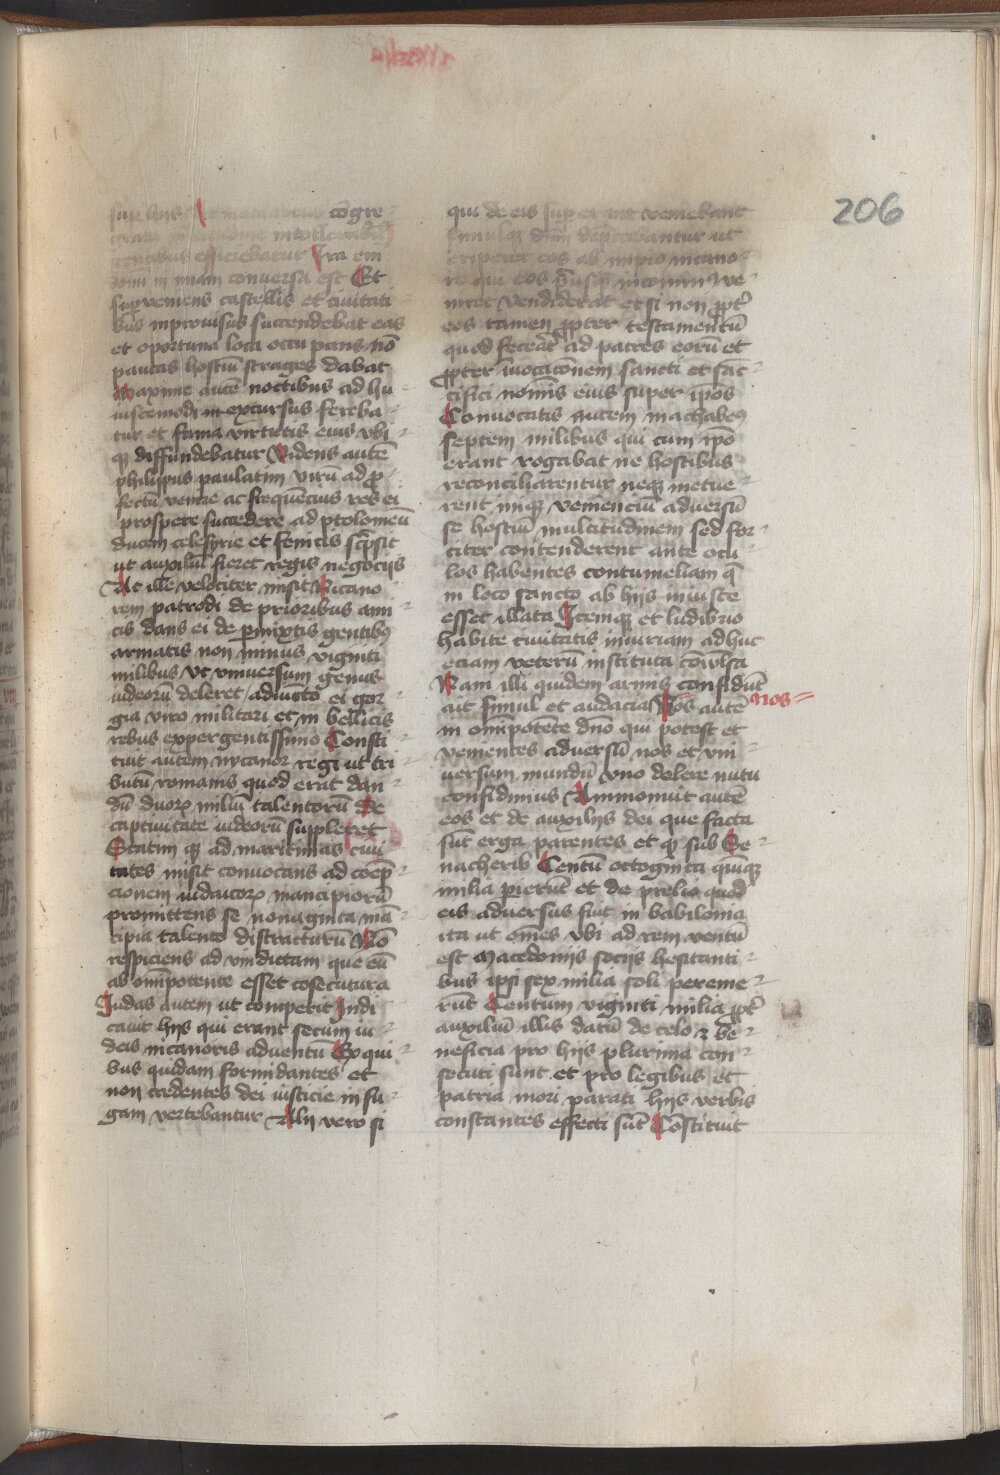 206
suu hijs At machabeus cōgre
grata multitudine intollerabil
gentibus efficiebatur Ira em̄
domi in miām conversa est Et
suꝑveniens castellis et civitati
bus inprovisus succendebat eas
et oportuna loca occupans nō
paucas hostiū strages dabat
Maxime autē noctibus ad hu
iuscemodi in excursus fereba
tur et fama virtutis eius vbi
qꝫ diffundebatur Videns autē
philippus paulatim virū ad ꝓ
fectū venire ac frequēcius res ei
prospere succedere ad ptolomeū
ducem celesyrie et fenicis sc̄psit
ut auxiliū fieret regis negocijs
At ille velociter misit Nicano
rem patrodi de prioribus ami
cis dans ei de ꝑmixtis gentibꝫ
armatis non minus viginti
milibus ut vniversum genus
iudeorū deleret adiūcto ei gor
gia viro militari et in bellicis
rebus expergentissimo Consti
tuit autem nycanor regi ut tri
butū romanis quod erat dan
dū duorꝝ miliū talentorū De
captivitate iudeorū suppleret
Statim qꝫ ad maritimas civi
tates misit convocans ad coēp
cionem iudaicorꝝ mancipiorū
promittens se nonaginta mā
cipia talento distracturū Nō
respiciens ad vindictam que eū
ab om̄ipotente esset cōsecutura
Judas autem ut comperit Indi
cavit hijs qui erant secum iu
deis nicanoris adventū Ex qui
bus quidam formidantes et
non credentes dei iusticie in fu
gam vertebantur Alij vero si
qui de eis super erat veniebant
simulqꝫ dm̄ deprecabantur ut
eriperet eos ab impio nicano
re qui eos priusqꝫ cominus ve
niret vendiderat et si non ꝓpt̄
eos tamen ꝓpter testamentū
quod fecerāt ad patres eorū et
ꝓpter invocacōnem sancti et san̄
tifici nomīs eius super ip̄os
Convocatis autem machabeꝰ
septem milibus qui cum ip̄o
erant rogabat ne hostibus
reconciliarentur neqꝫ metue
rent iniqꝫ veniēnciū adversū
se hostiū multitudinem sed for
titer contenderent ante ocu
los habentes contumeliam q̄
in loco sancto ab hijs iniuste
esset illata Itemqꝫ et ludibrio
habite civitatis iniuriam adhuc
eciam veterū instituta cōvulsa
Nam illi quidem armis confidūt
ait simul et audacia Nos autē nos
in om̄ipotēte dn̄o qui potest et
venientes adversū nos et vni
versum mundū vno delere nutu
confidimus Ammonuit autē
eos et de auxilijs dei que facta
sūt erga parentes et qꝫ sub Se
nacherib Centū octoginta quīqꝫ
milia ꝑierūt et de prelio quod
eis adversus fuit in babilonia
ita ut om̄es vbi ad rem ventū
est Macedonijs socijs hesitanti
bus ipsi sex milia soli pereme
rūt Centum viginti milia ꝓpt̄
auxiliū illis datū de celo et be
neficia pro hijs plurima con
secuti sunt et pro legibus et
patria mori parati hijs verbis
constantes effecti sūt Cōstituit